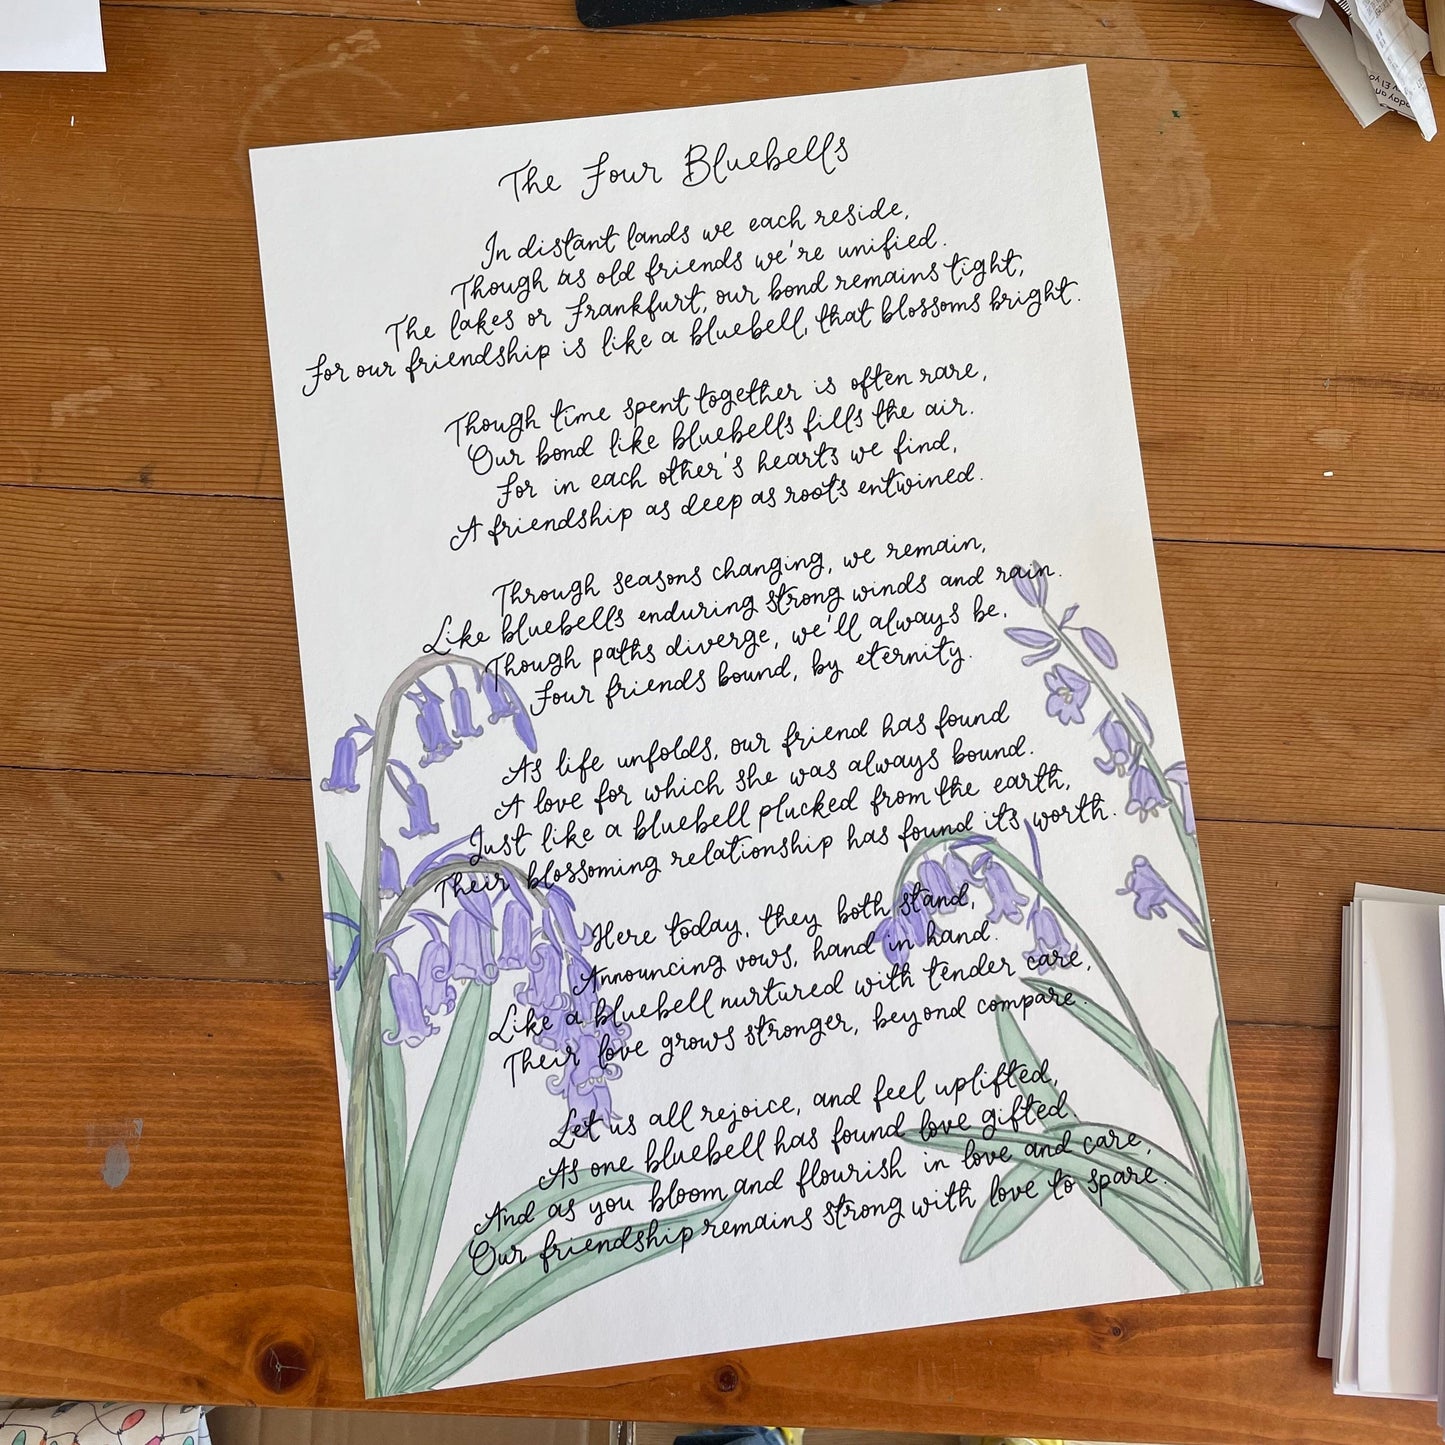 The Four Bluebells
In distant lands we each reside,
Though as old friends we're unified.
The lakes or Frankfurt, our bond remains tight,
For our friendship is like a bluebell, that blossoms bright.
Though time spent together is often rare,
Our bond like bluebells fills the air.
For in each other's hearts we find,
A friendship as deep as roots entwined.
Through seasons changing, we remain,
Like bluebells enduring strong winds and rain.
Though paths diverge, we'll always be,
Four friends bound, by eternity.
As life unfolds, our friend has found
A love for which she was always bound.
Just like a bluebell plucked from the earth,
Their blossoming relationship has found it's worth.
Here today, they both stand,
Announcing vows, hand in hand.
Like a bluebell nurtured with tender care,
Their love grows stronger, beyond compare.
Let us all rejoice, and feel uplifted,
As one bluebell has found love gifted
And as you bloom and flourish in love and care,
Our friendship remains strong with love to spare.